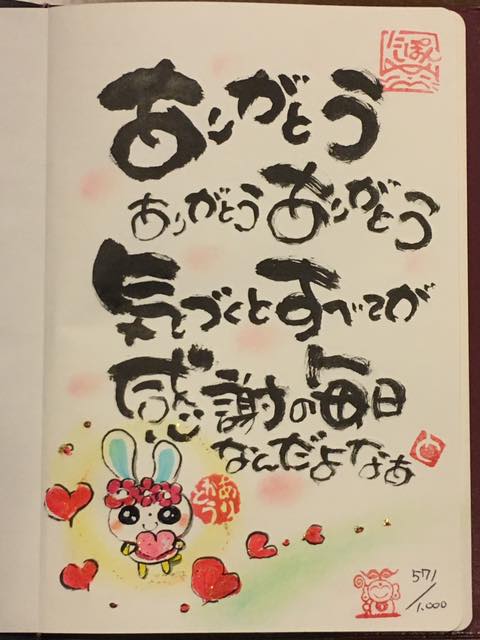 にっぽん
ありがとう
ありがとう ありがとう
気づくとすべてが
感謝の毎日
なんだよなあ
ありがとう
571/1.000